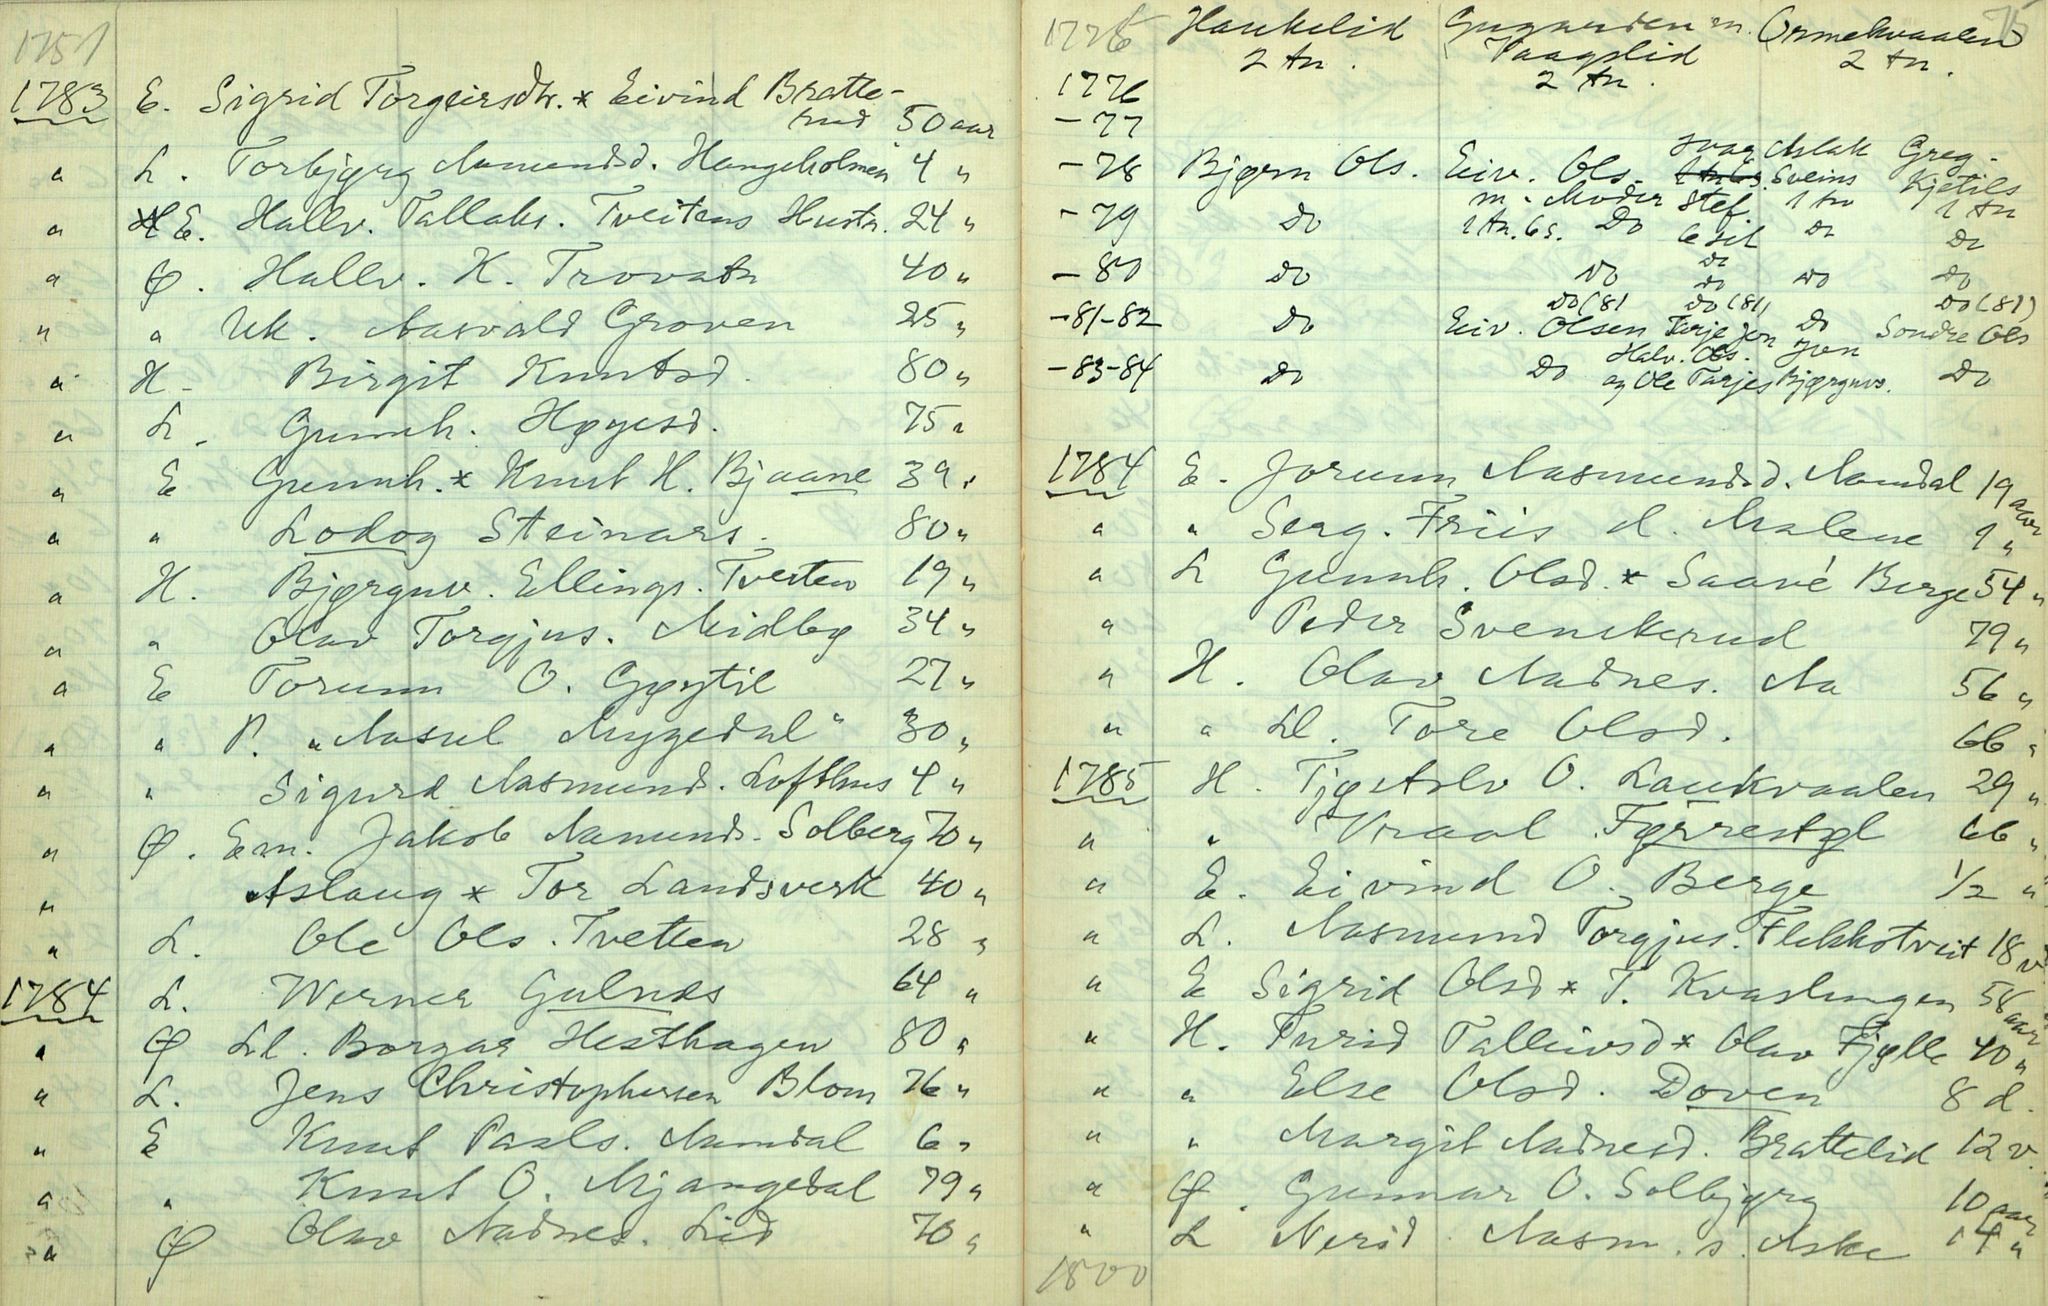 1751
1783 E. Sigrid Torgeirsdtr. * Eivind Bratte-
rud 50 aar
" L. Torbjørg Aamundsd. Haugeholmen 4 "
" E. Hallv. Tallaks. Tveitens Hustr. 24 "
" Ø. Hallv. K. Trovatn 40 "
" " Uk. Aasvald Groven 25 "
" H. Birgit Knutsd. 80 "
" L. Gunnh. Høyesd. 75 "
" E Gunnh. * Knut H. Bjaane 39 "
" " Lodog Steinars. 80 "
" H. Bjørgulv. Ellings. Tveiten 19 "
" " Olav Torgjus. Midbø 34 "
" E Torunn O. Gøytil 27 "
" " P. "Aasul Mygedal" 30 "
" " Sigurd Aasmunds. Lofthus 4 "
" Ø. Em. Jakob Aamunds. Solberg 70 "
" Aslaug * Tor Landsverk 40 "
" L. Ole Ols. Tvetten 28 "
1784 L. Werner Gulnes 64 "
" Ø Ll. Borgar Hesthagen 80 "
" L. Jens Christophersen Blom 76 "
" E Knut Paals. Aamdal 6 "
" " Knut O. Mjaugedal 79 "
" Ø Olav Aadnes. Lid 70 "
1776 Haukelid Gugarden m. Ormekvaalen 75
2 tn. Vaagslid 2 tn.
1776 2 tn.
- 77
- 78 Bjørn Ols. Eiv. Ols. Svag Aslak Greg.
m. Moder Stef. Sveins Kjetils
1 tn 1 tn
- 79 Do 1 tn. 6 s. Do 6 set Do Do
- 80 Do Do Do Do Do
Do (81) Do (81) Do (81)
- 81-82 Do Eiv. Olsen Terje Jon Do Sondre Ols
- 83-84 Do Do Halv. Ols. Jon
og Ole Tarjes Bjørgulvs. Do
1784 E. Jorunn Aasmundsd. Aamdal 19 aar
" " Serg. Friis d. Malene 9 "
" L Gunnh. Olsd. * Saavé Berge 54 "
" Peder Svenskerud 79 "
" H. Olav Aadnes. Aa 56 "
" " Ll. Tore Olsd. 66 "
1785 H. Tjøstolv O. Laukvaalen 29 "
" " Vraal Førrestøl 66 "
" E. Eivind O. Berge 1/2 "
" L. Aasmund Torgjus. Flekkstveit 18 v
" E Sigrid Olsd * T. Kvaslungen 58 aar
" H. Turid Talleivsd * Olav Fjølle 40 "
" " Else Olsd. Doven 8 d.
" " Margit Aadnesd. Brattelid 12 v.
" Ø. Gunnar O. Solbjørg 10 aar
" L Nerid Aasm. s. Aske 14 "
1800